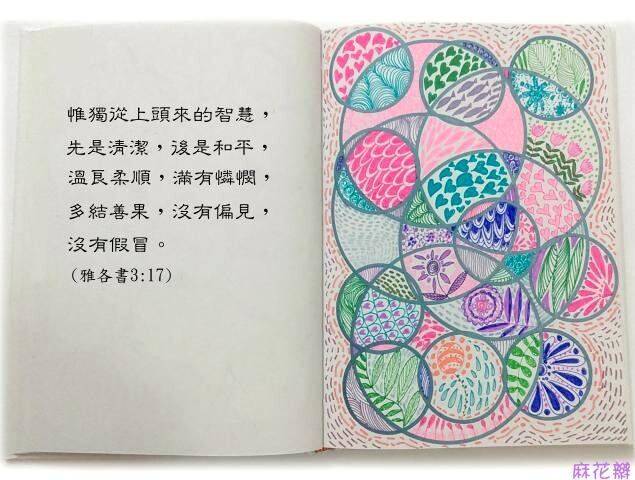 惟獨從上頭來的智慧，
先是清潔，後是和平，
溫良柔順，滿有憐憫，
多結善果，沒有偏見，
沒有假冒。
（雅各書3:17）
麻花辮